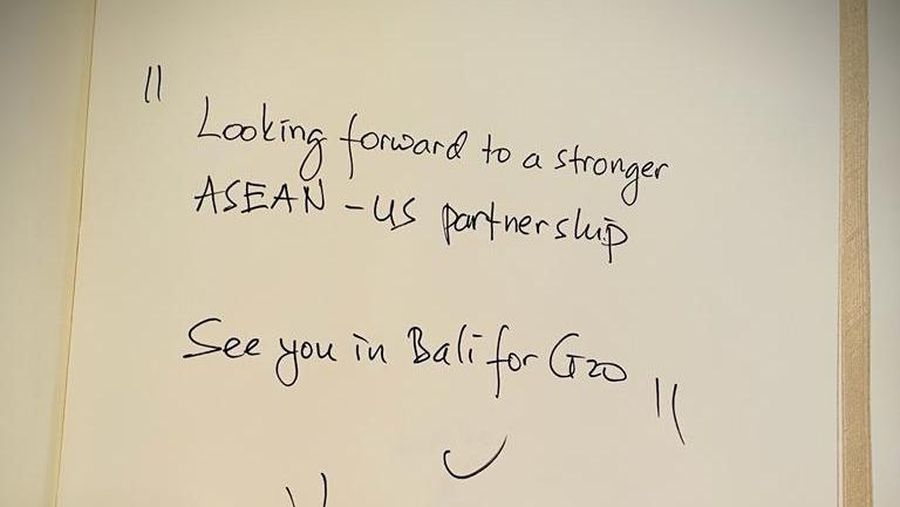 "Looking forward to a stronger
ASEAN - US partnership
See you in Bali for G20"